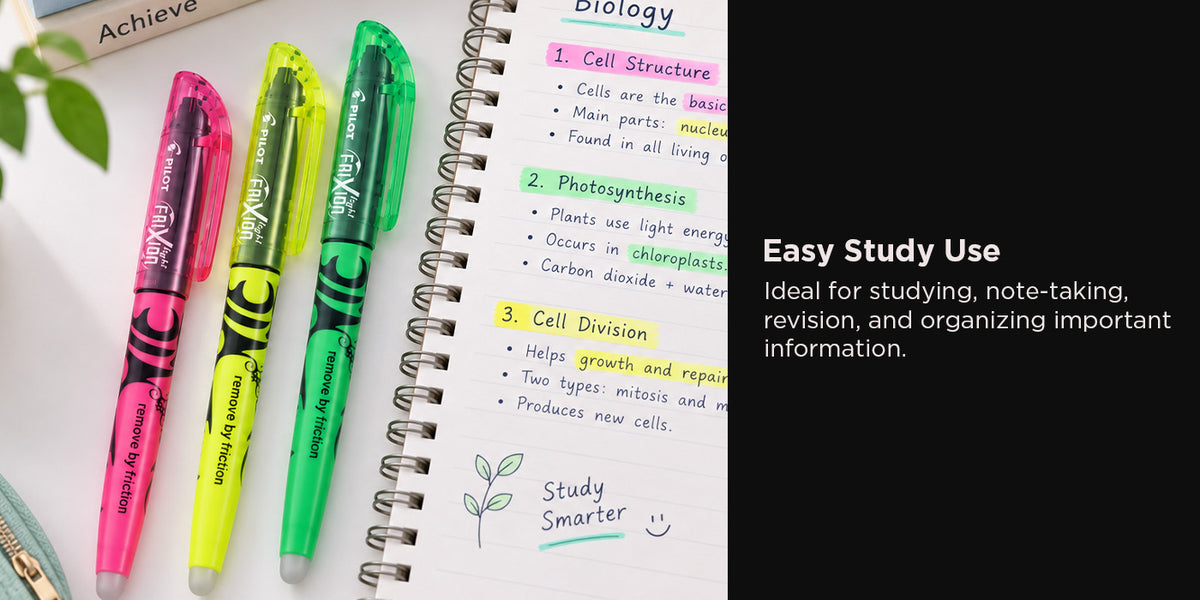 Achieve
PILOT
FRIXION
light
remove by friction
PILOT
FRIXION
light
remove by friction
PILOT
FRIXION
light
remove by friction
Biology
1. Cell Structure
• Cells are the basic
• Main parts: nucleu
• Found in all living o
2. Photosynthesis
• Plants use light energy
• Occurs in chloroplasts.
• Carbon dioxide + water
3. Cell Division
• Helps growth and repair
• Two types: mitosis and m
• Produces new cells.
Study
Smarter
Easy Study Use
Ideal for studying, note-taking,
revision, and organizing important
information.